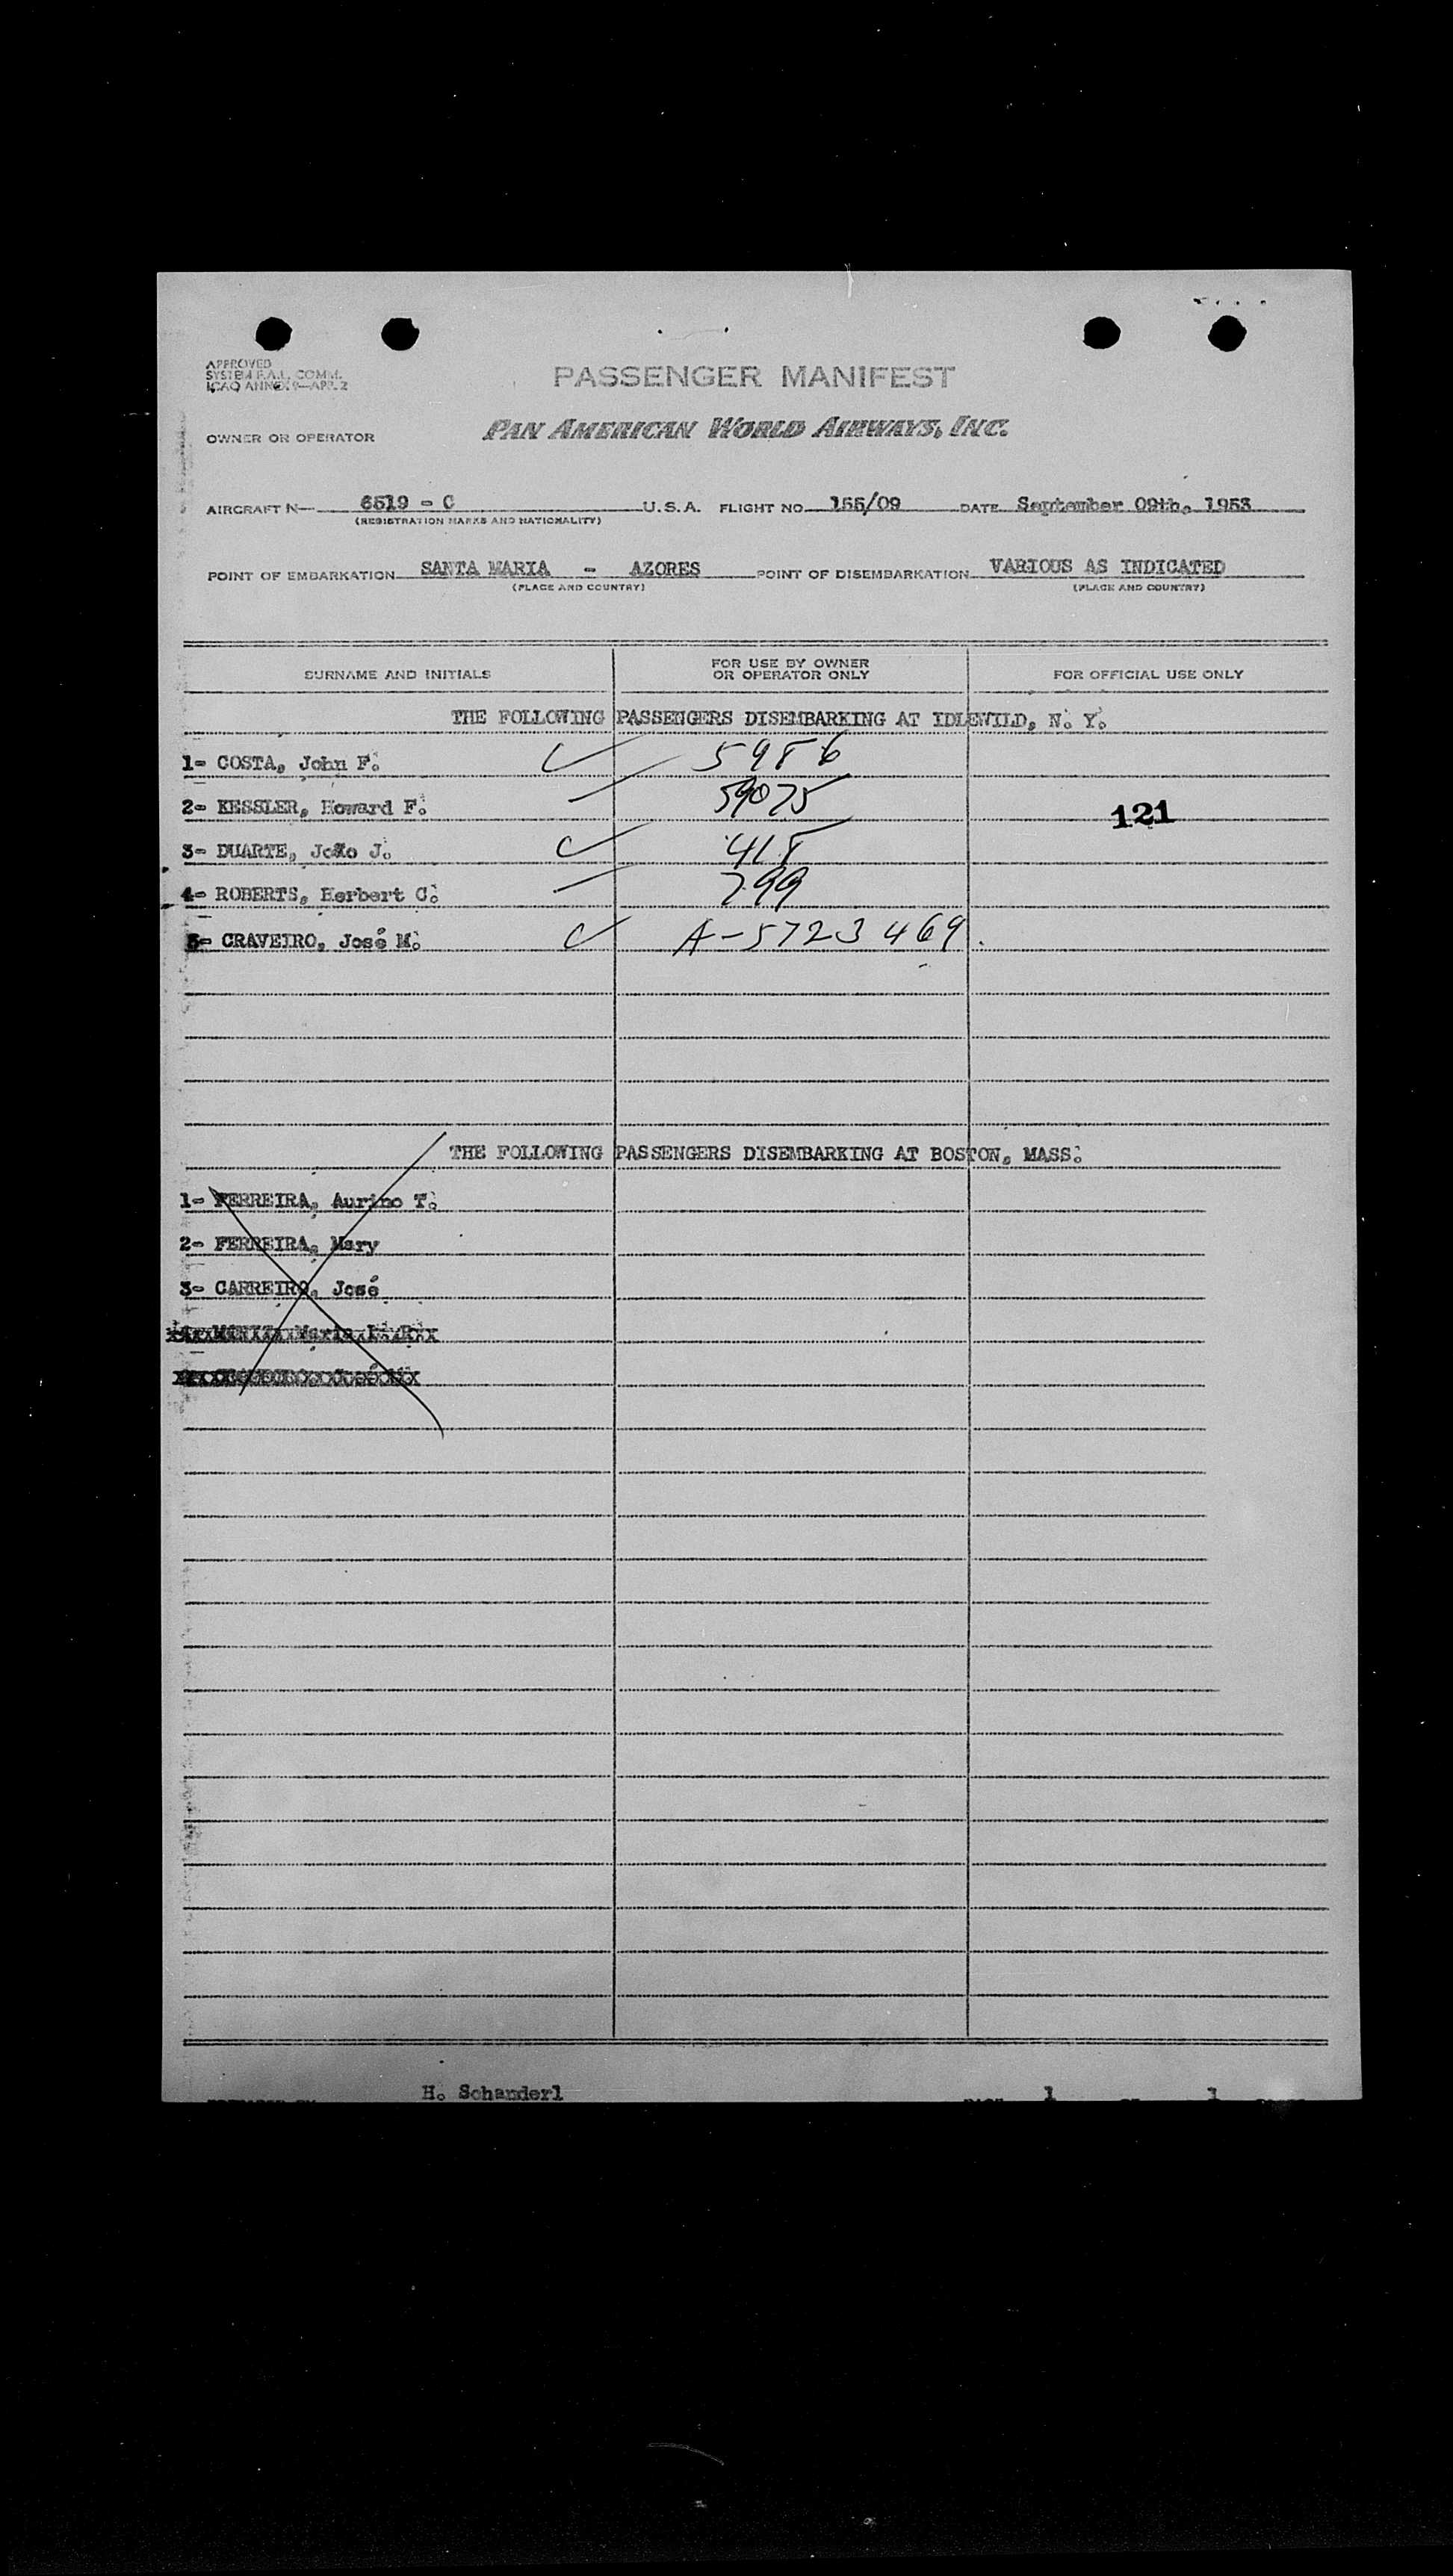 APPROVED
SYSTEM F.A.L. COMM.
ICAO ANNEX 9—APP. 2
PASSENGER MANIFEST
OWNER OR OPERATOR PAN AMERICAN WORLD AIRWAYS, INC.
AIRCRAFT N— 6519 - C U.S.A. FLIGHT NO. 155/09 DATE September 09th, 1953
(REGISTRATION MARKS AND NATIONALITY)
POINT OF EMBARKATION SANTA MARIA - AZORES POINT OF DISEMBARKATION VARIOUS AS INDICATED
(PLACE AND COUNTRY) (PLACE AND COUNTRY)
SURNAME AND INITIALS FOR USE BY OWNER OR OPERATOR ONLY FOR OFFICIAL USE ONLY
THE FOLLOWING PASSENGERS DISEMBARKING AT IDLEWILD, N. Y.
1- COSTA, John F. 5986
2- KESSLER, Howard F. 59075 121
3- DUARTE, João J. 418
4- ROBERTS, Herbert C. 799
5- CRAVEIRO, José M. A-5723469
THE FOLLOWING PASSENGERS DISEMBARKING AT BOSTON, MASS.
1- FERREIRA, Aurino T.
2- FERREIRA, Mary
3- CARREIRO, José
H. Schanderl 1 1